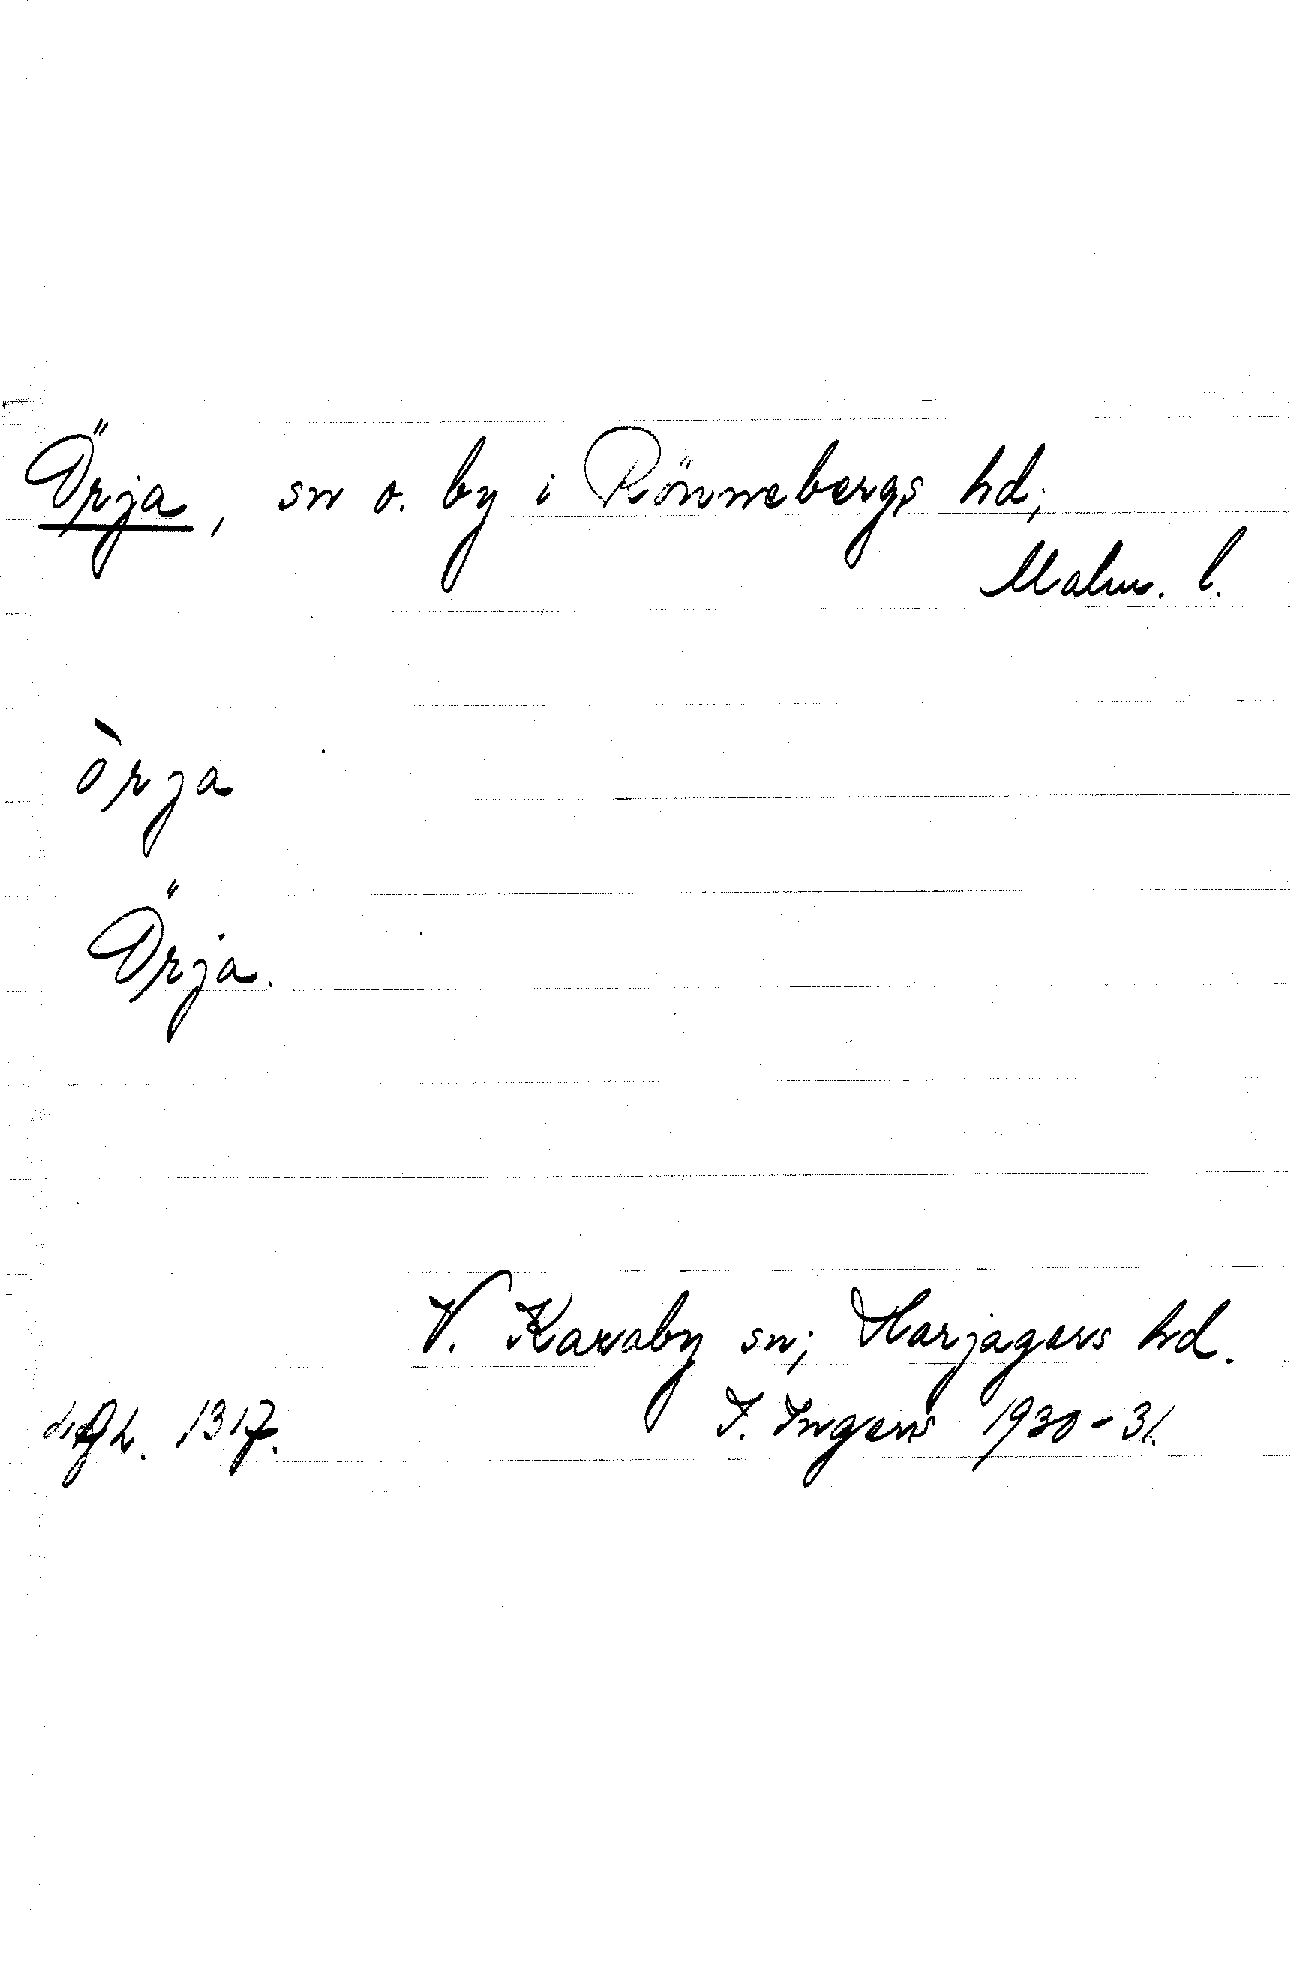 Örja, sn o. by i Rönnebergs hd,
Malm. l.
òrja
Örja.
V. Karaby sn; Harjagers hd.
I. Ingers 1930-31.
1317.